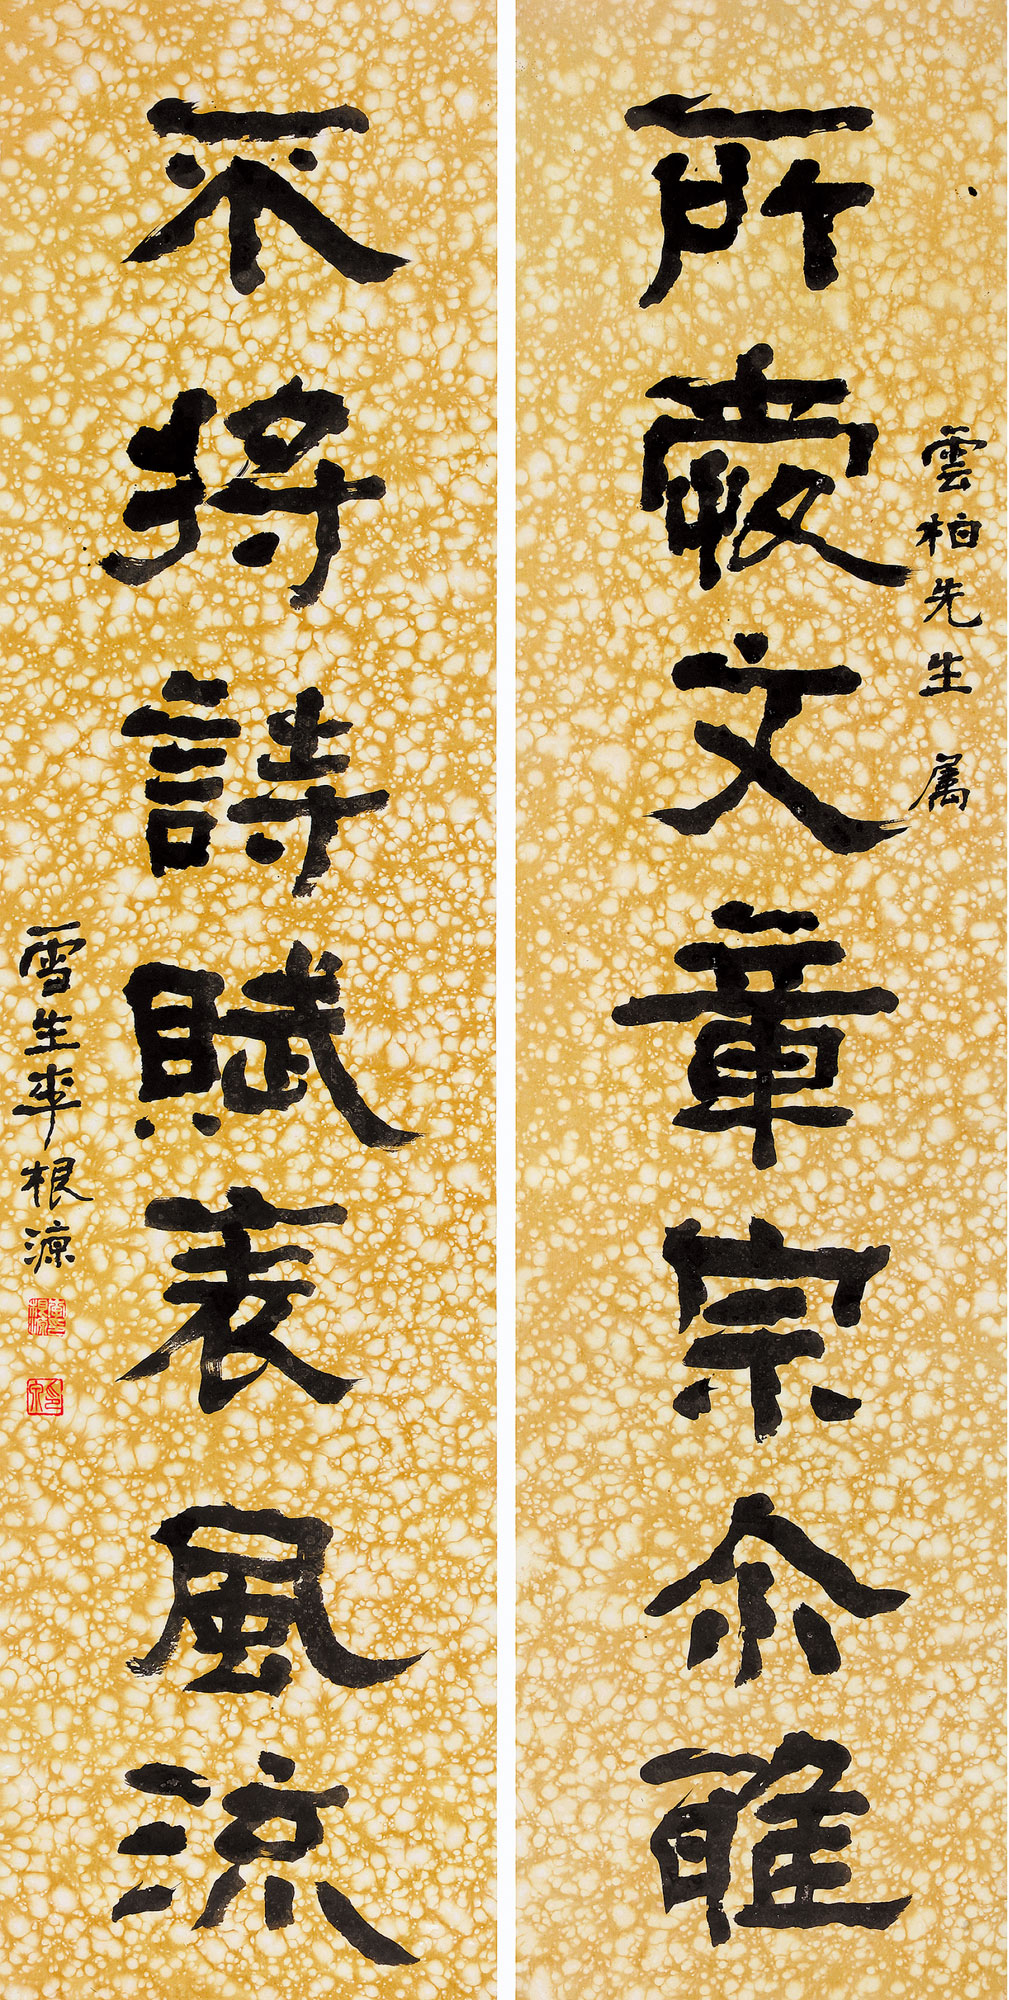 雲柏先生 属
所文章宗尒雅
不將詩賦表風流
雪生李根源